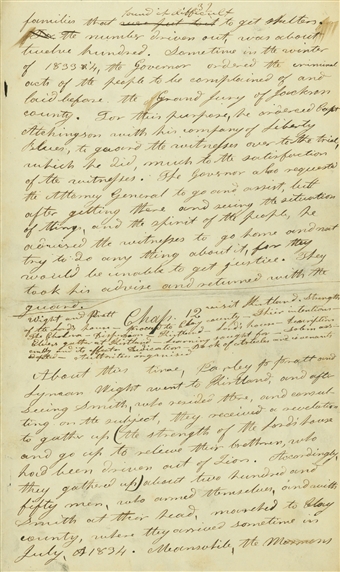 found it difficult
families that to get shelter.
the number driven out, was about
twelve hundred. Sometime in the winter
of 1833 & 4, the Governor ordered the criminal
acts of the people to be complained of and
laid before the Grand Jury of Jackson
county. For this purpose, he ordered Capt
Atchingson with his company of Liberty
Blues, to guard the witnesses over to the trial,
which he did, much to the satisfaction
of the witnesses. The Governor also requested
the Attorney General to go and assist, but
after getting there and seeing the situation
of things, and the spirit of the people, he
advised the witnesses to go home and not
try to do any thing about it, for they
would be unable to get justice. They
took his advise and returned with the
guard.
Chap. 12
Wight and Pratt visit Kirtland, Strength
of the Lords house
About this time, Parley P. Pratt and
Lyman Wight went to Kirtland, and after
seeing Smith, who resided there, and consul-
ting on the subject, they received a revelation
to gather up (the strength of the Lords house
and go up to relieve their brethren, who
had been driven out of Zion. Accordingly,
they gathered up) about two hundred and
fifty men, who armed themselves, and with
Smith at their head, marched to Clay
county, where they arrived sometime in
July, of 1834. Meanwhile, the Mormons